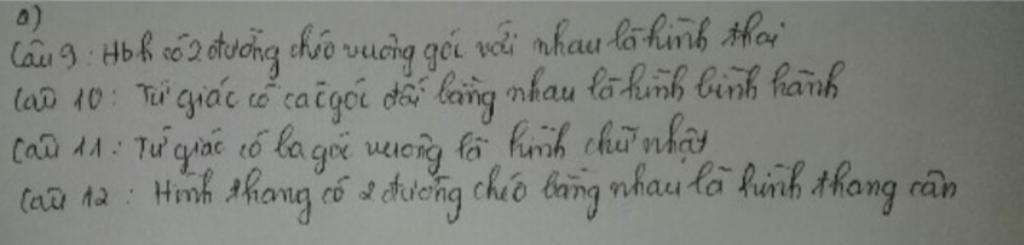 a)
Câu 9: Hbh có 2 đường chéo vuông góc với nhau là hình thoi
Câu 10: Tứ giác có các góc đối bằng nhau là hình bình hành
Câu 11: Tứ giác có ba góc vuông là hình chữ nhật
Câu 12: Hình thang có 2 đường chéo bằng nhau là hình thang cân